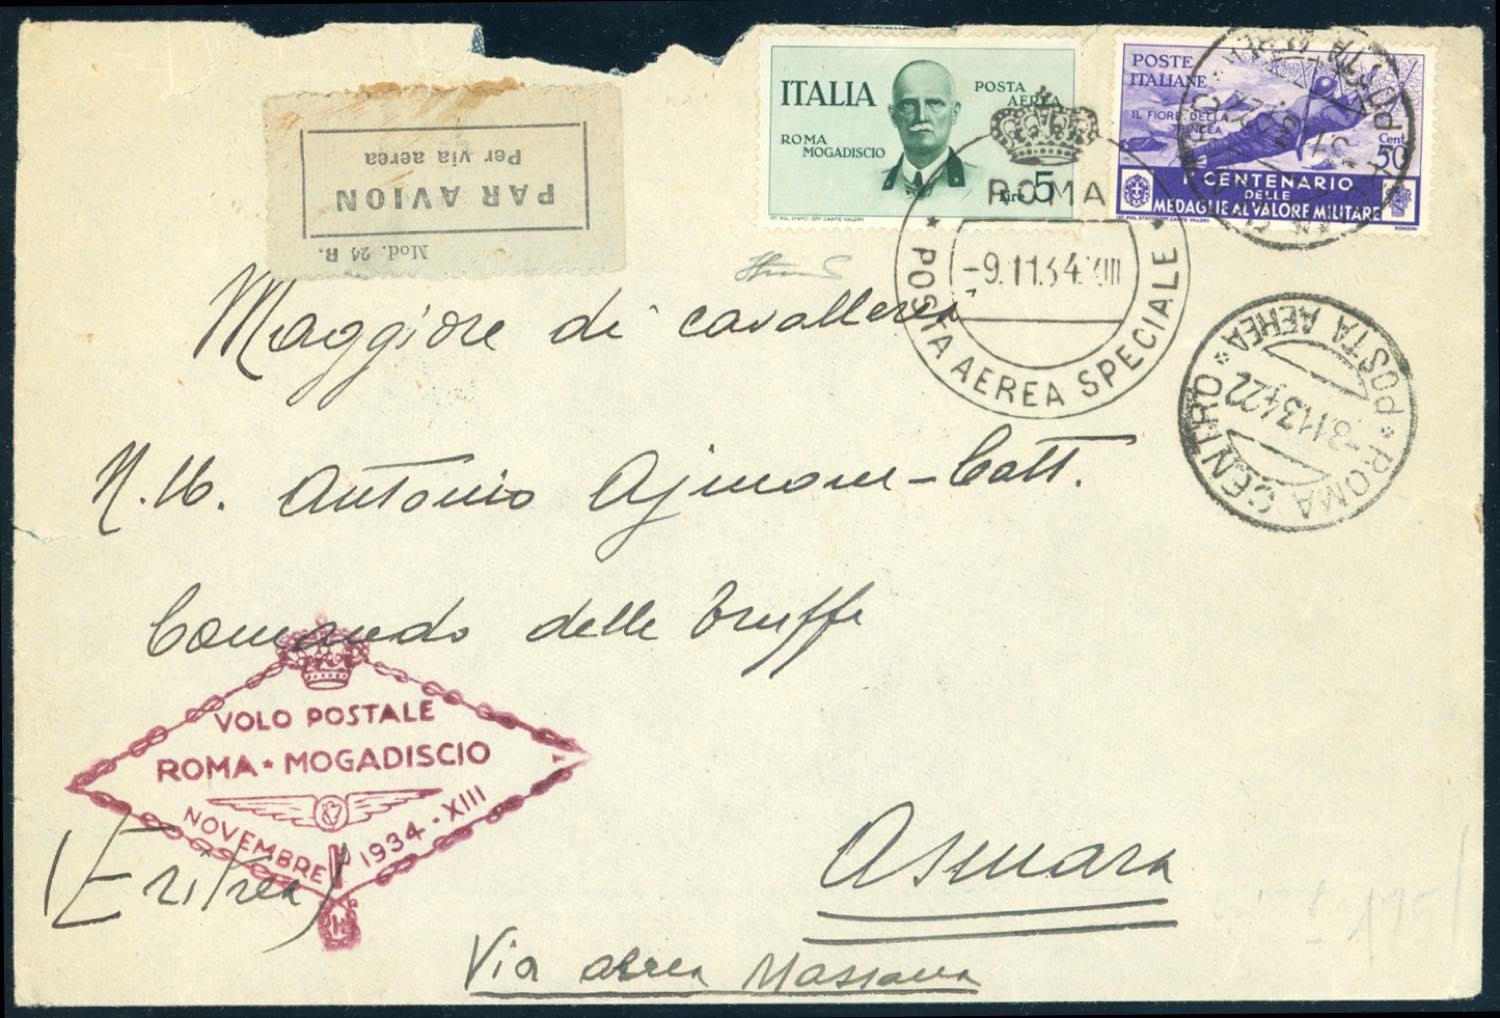 PAR AVION
Per via aerea
Mod. 24 B.
ITALIA
POSTA
AEREA
ROMA
MOGADISCIO
Lire 5
IST. POL. STATO OFF. CARTE VALORI
POSTE
ITALIANE
IL FIORE DELLA
Cent.
50
1° CENTENARIO
DELLE
MEDAGLIE AL VALORE MILITARE
ROMA
-9.11.34.XIII
POSTA AEREA SPECIALE
ROMA CENTRO
POSTA AEREA
-8.11.34.22
Maggiore di cavalleria
N.H. Antonio Ajmone-Catt.
Comando delle Truffe
VOLO POSTALE
ROMA * MOGADISCIO
NOVEMBRE 1934 - XIII
Asmara
(Eritrea)
Via aerea Massaua